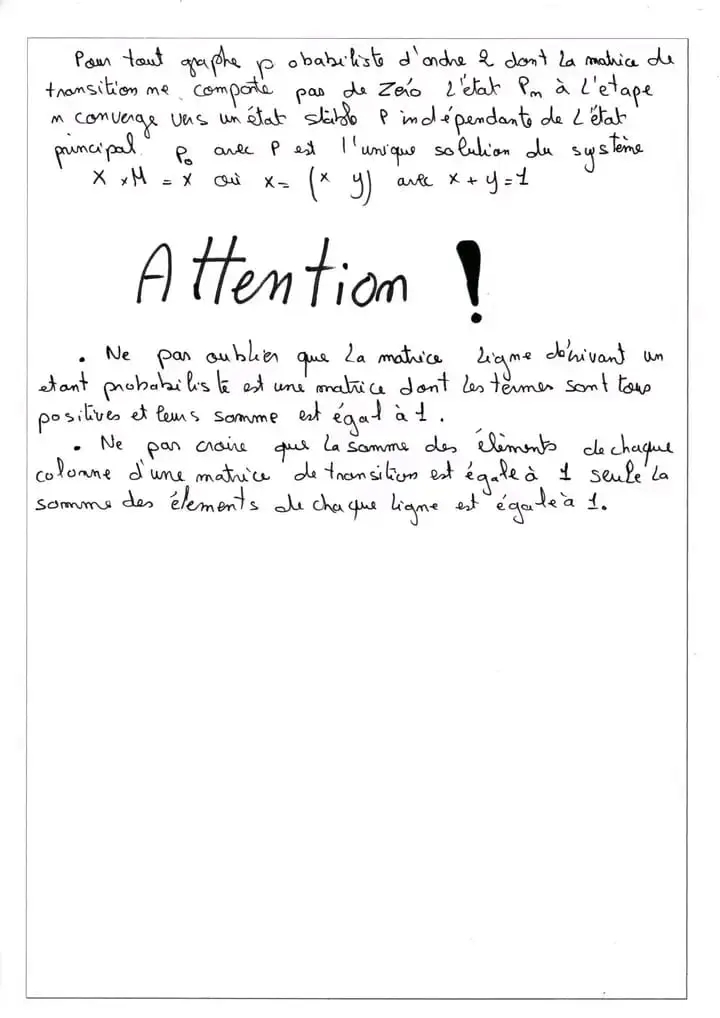 Pour tout graphe p obabiliste d'ordre 2 dont la matrice de
transition ne comporte pas de Zéro L'état Pn à L'etape
n converge vers un état stable P indépendante de L'état
principal P₀ avec P est l'unique solution du système
X × M = X où X = (x y) avec x + y = 1
Attention !
• Ne pas oublier que La matrice Ligne décrivant un
etant probabiliste est une matrice dont Les termes sont tous
positives et leurs somme est égal à 1.
• Ne pas croire que La somme des élèments de chaque
colonne d'une matrice de transition est égale à 1 seule La
somme des élements de chaque Ligne est égale à 1.